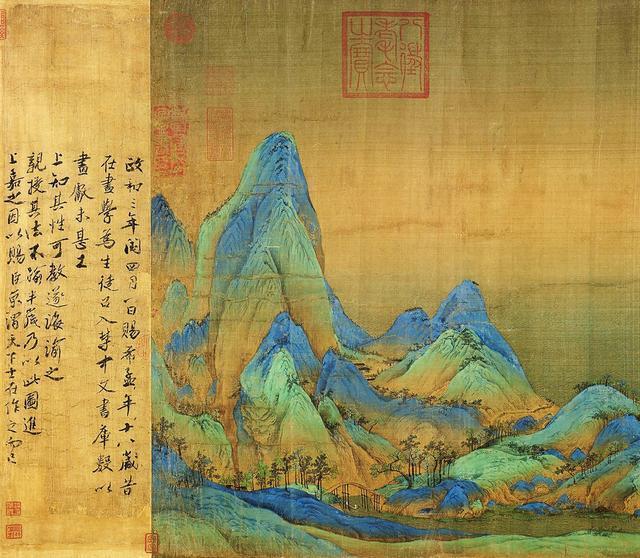 八徵
耄念
之寶
政和三年閏四月一日賜希孟年十八歲昔
在畫學為生徒召入禁中文書庫數以
畫獻未甚工
上知其性可教遂誨諭之
親授其法不踰半歲乃以此圖進
上嘉之因以賜臣京謂天下士在作之而已